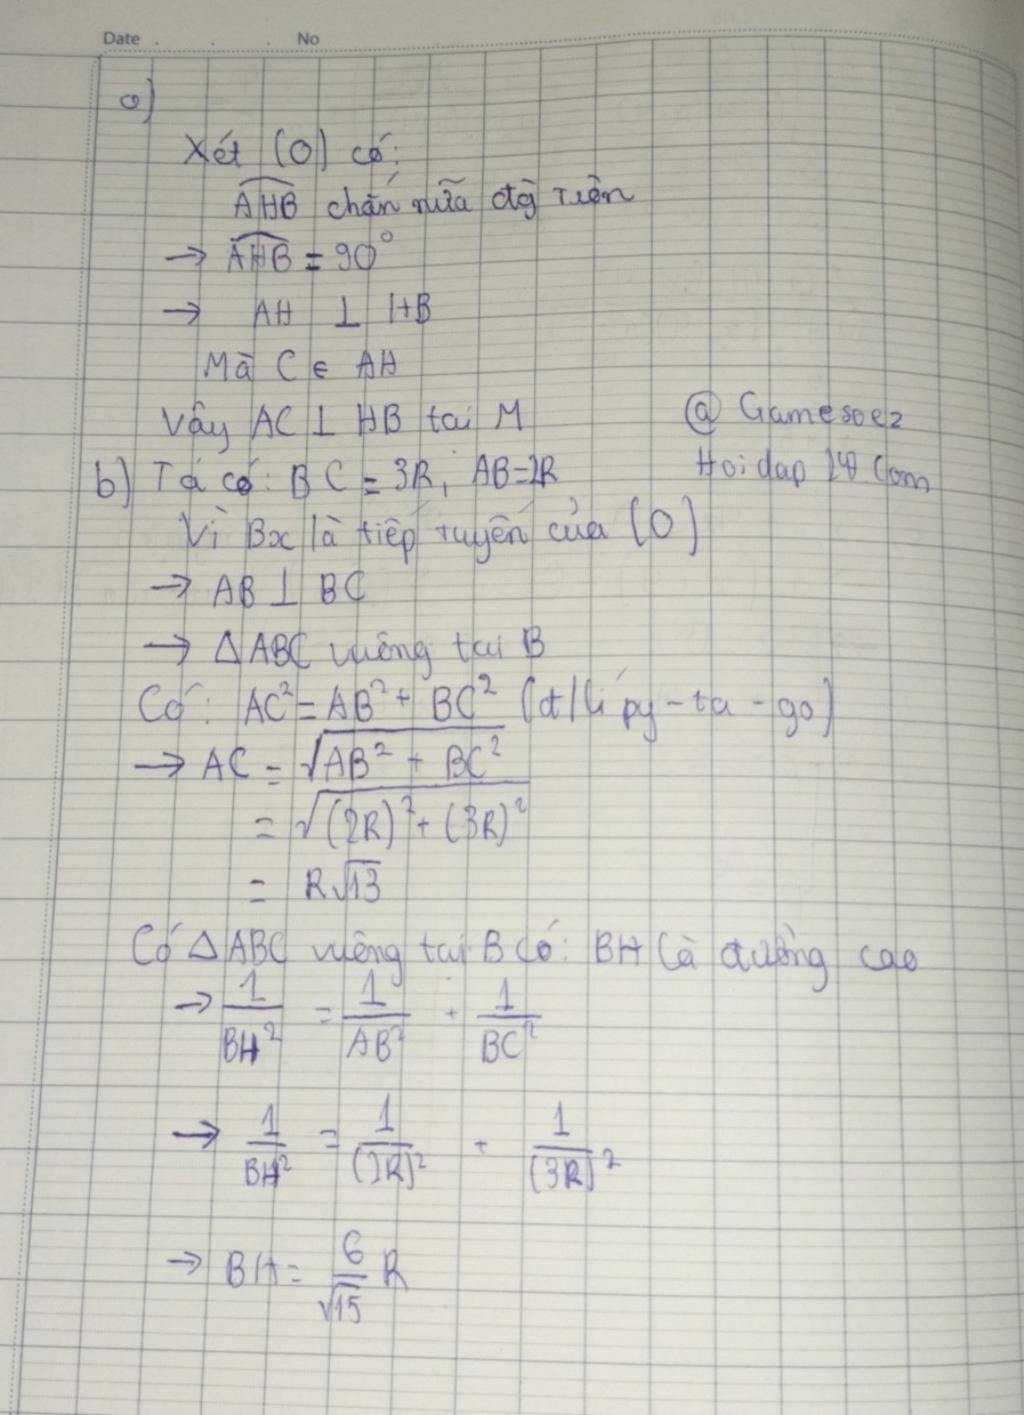 Date . . . No
a)
Xét (O) có:
AHB chắn nửa đg tròn
→ AHB = 90°
→ AH ⊥ HB
Mà C ∈ AH
Vậy AC ⊥ HB tại M
@ Gamesoez
Hoidap 247 Com
b) Ta có: BC = 3R, AB=2R
Vì Bx là tiếp tuyến của (O)
→ AB ⊥ BC
→ △ABC vuông tại B
Có: AC² = AB² + BC² (đ/lí py-ta-go)
→ AC = √AB² + BC²
= √(2R)² + (3R)²
= R√13
Có △ABC vuông tại B có: BH là đường cao
→ 1/BH² = 1/AB² + 1/BC²
→ 1/BH² = 1/(2R)² + 1/(3R)²
→ BH = 6/√15 R